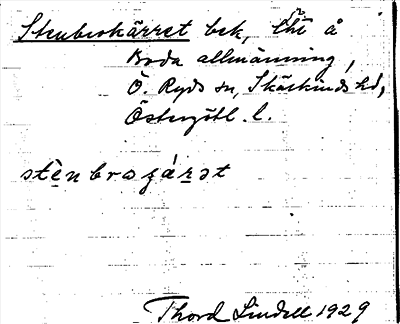 Stenbrokärret bek, tht å
Boda allmänning,
Ö. Ryds sn, Skärkinds hd,
Östergötl. l.
stènbroʒár̲ət
Thord Lindell 1929